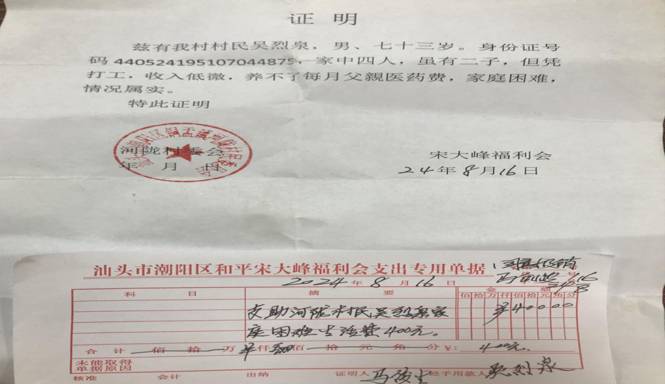 证明
兹有我村村民吴烈泉，男、七十三岁。身份证号
码440524195107044875，家中四人，虽有二子，但凭
打工，收入低微，养不了每月父亲医药费，家庭困难，
情况属实。
特此证明
河陇村委会
年 月 日
宋大峰福利会
24年8月16日
汕头市潮阳区和平宋大峰福利会支出专用单据
2024年8月16日
科目 摘要 金额
佰拾万仟佰拾元角分
支助河陇村民吴烈泉家 ¥40000
庭困难生活费400元。
合计 佰 拾 万 仟 佰 拾 元 角 分 ¥: 400元
未能取得
单据原因
核准 会计 出纳 证明人 经手用款人 吴烈泉